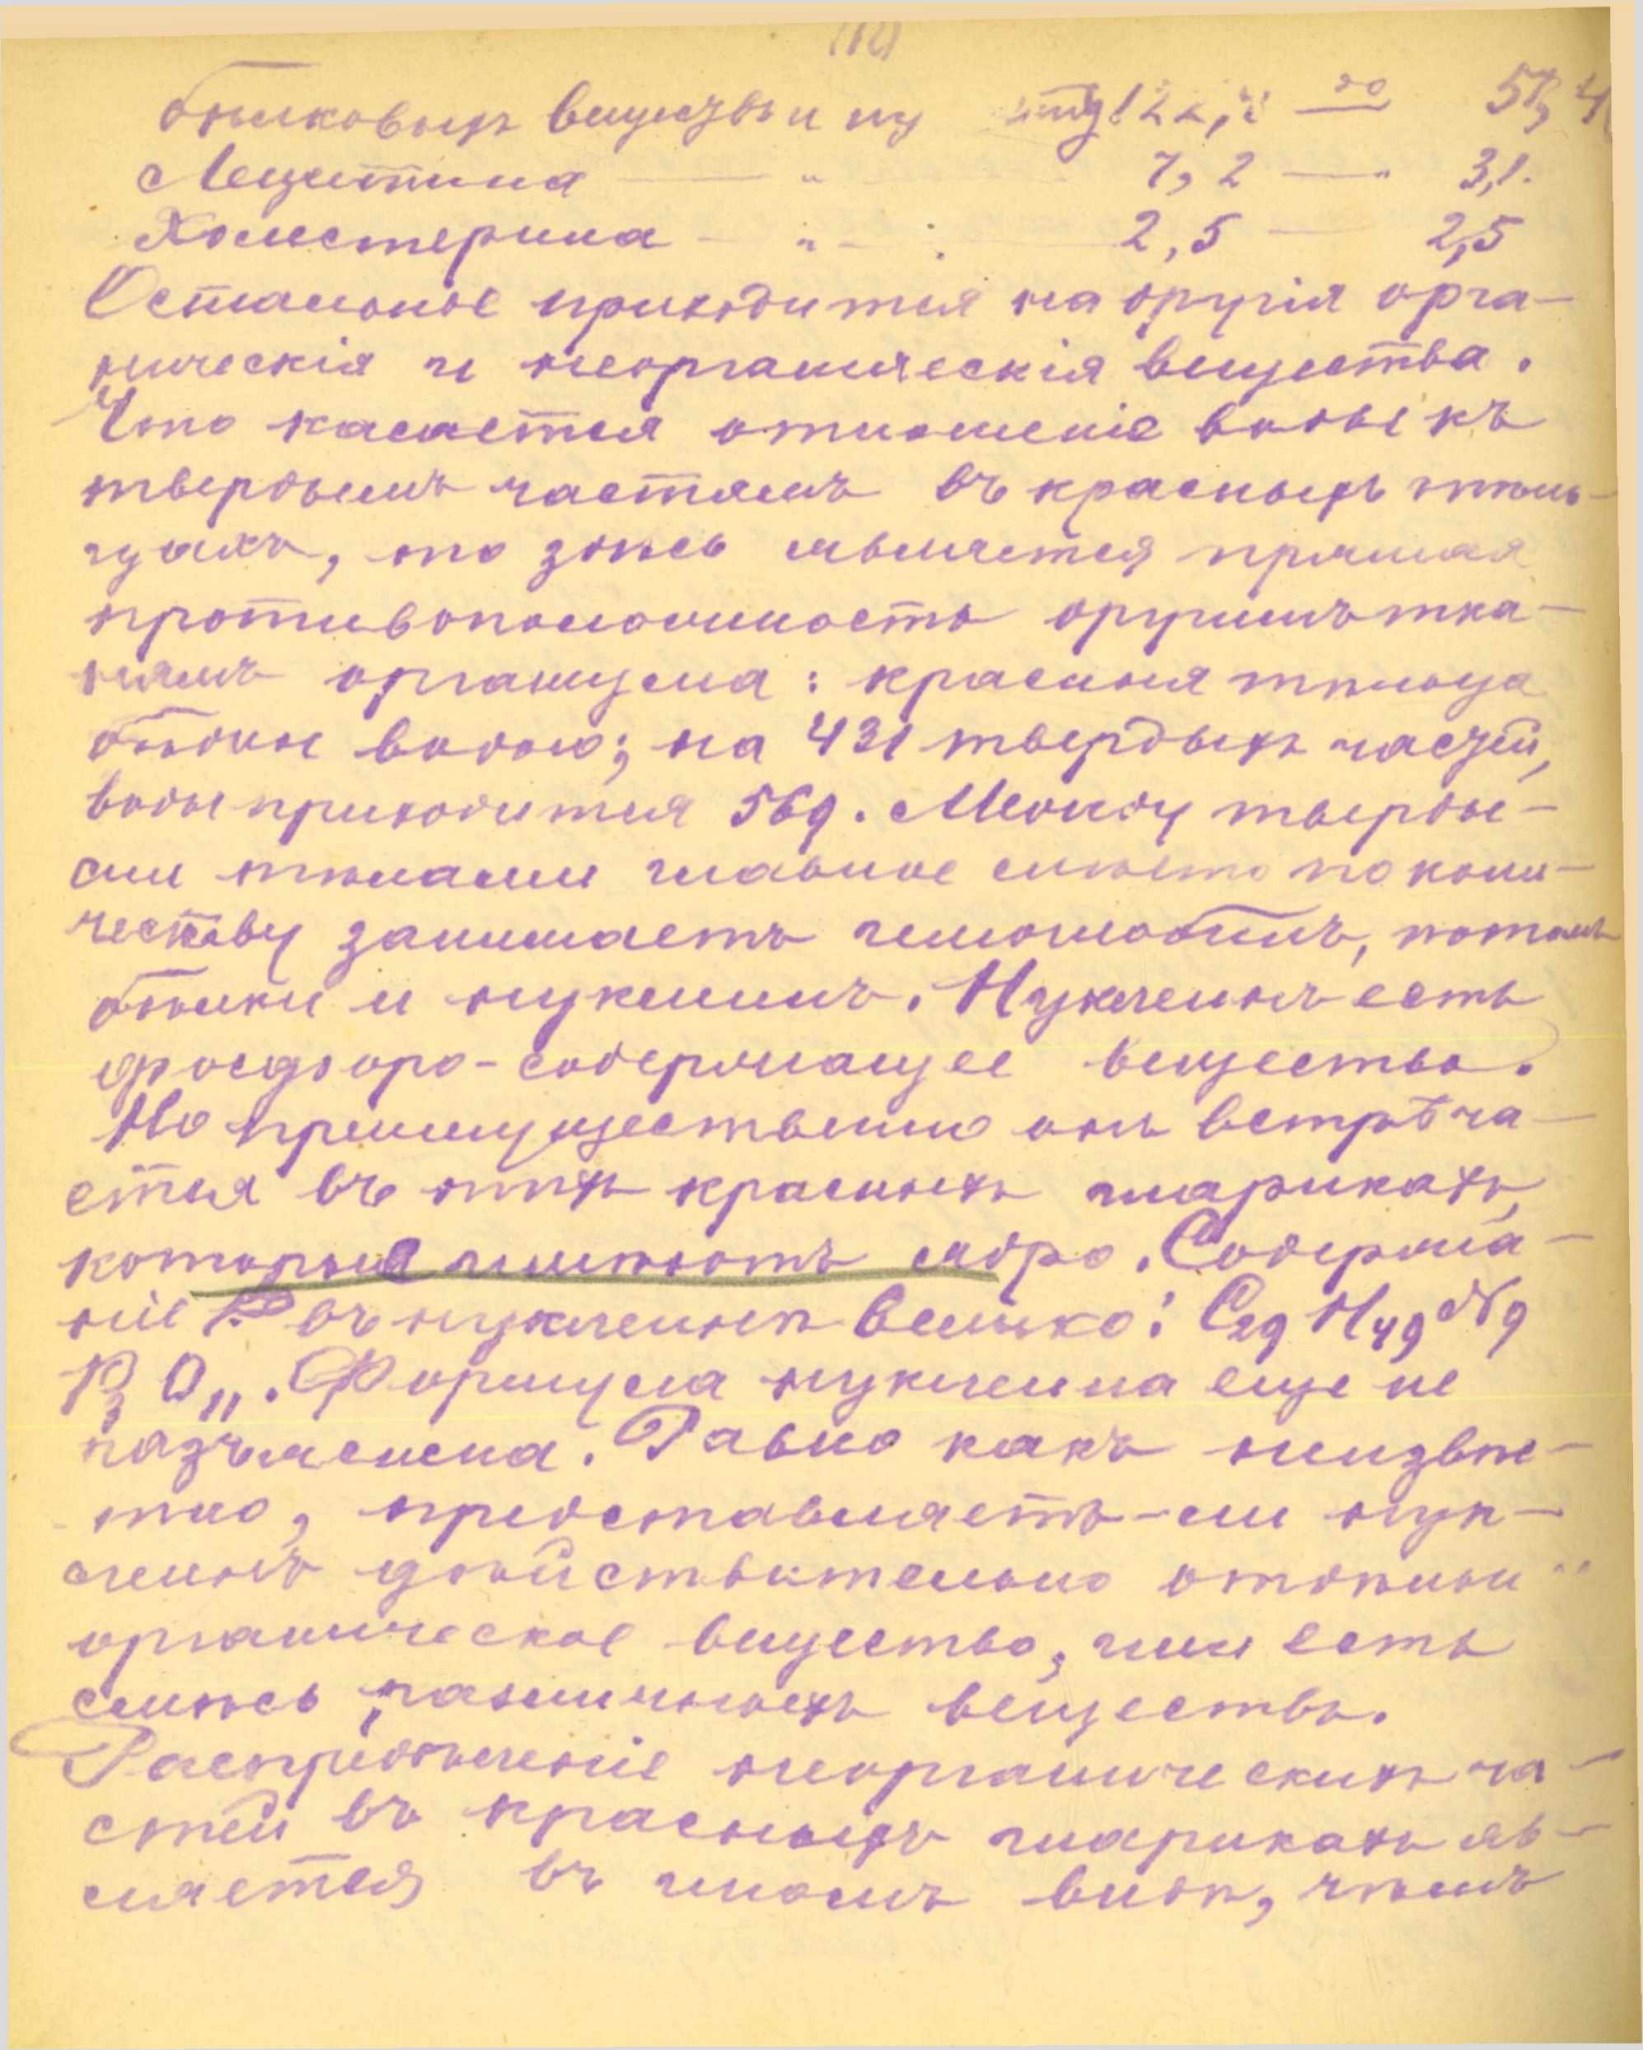 бѣлковыхъ веществъ и ну до
Лецитина — " — 7,2 — " 3,1.
Холестерина — " — 2,5 — 2,5
Остальное приходится на другія орга-
ническія и неорганическія вещества.
Что касается отношенія воды къ
твердымъ частямъ въ красныхъ тѣль-
цахъ, то здѣсь является прямая
противоположность другимъ тка-
нямъ организма: красныя тѣльца
бѣдны водою; на 431 твердыхъ частей,
воды приходится 569. Между тверды-
ми тѣлами главное мѣсто по коли-
честву занимаетъ гемоглобинъ, потомъ
бѣлки и нуклеинъ. Нуклеинъ есть
фосфоро-содержащее вещество.
Но преимущественно онъ встрѣча-
ется въ тѣхъ красныхъ шарикахъ,
которыя имѣютъ ядро. Содержа-
ніе P въ нуклеинѣ велико: C29 H49 N9
P3 O22. Формула нуклеина еще не
разъяснена. Равно какъ неизвѣ-
стно, представляетъ-ли нук-
леинъ дѣйствительно отдѣльн
органическое вещество, или есть
смѣсь различныхъ веществъ.
Распредѣленіе неорганическихъ ча-
стей въ красныхъ шарикахъ яв-
ляется въ иномъ видѣ, чѣмъ